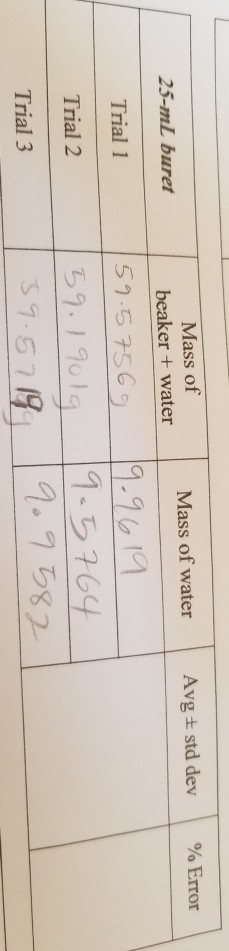 25-mL buret	Mass of beaker + water	Mass of water	Avg ± std dev	% Error
Trial 1	59.5756g	9.9619
Trial 2	59.1901g	9.5764
Trial 3	59.5719g	9.9582